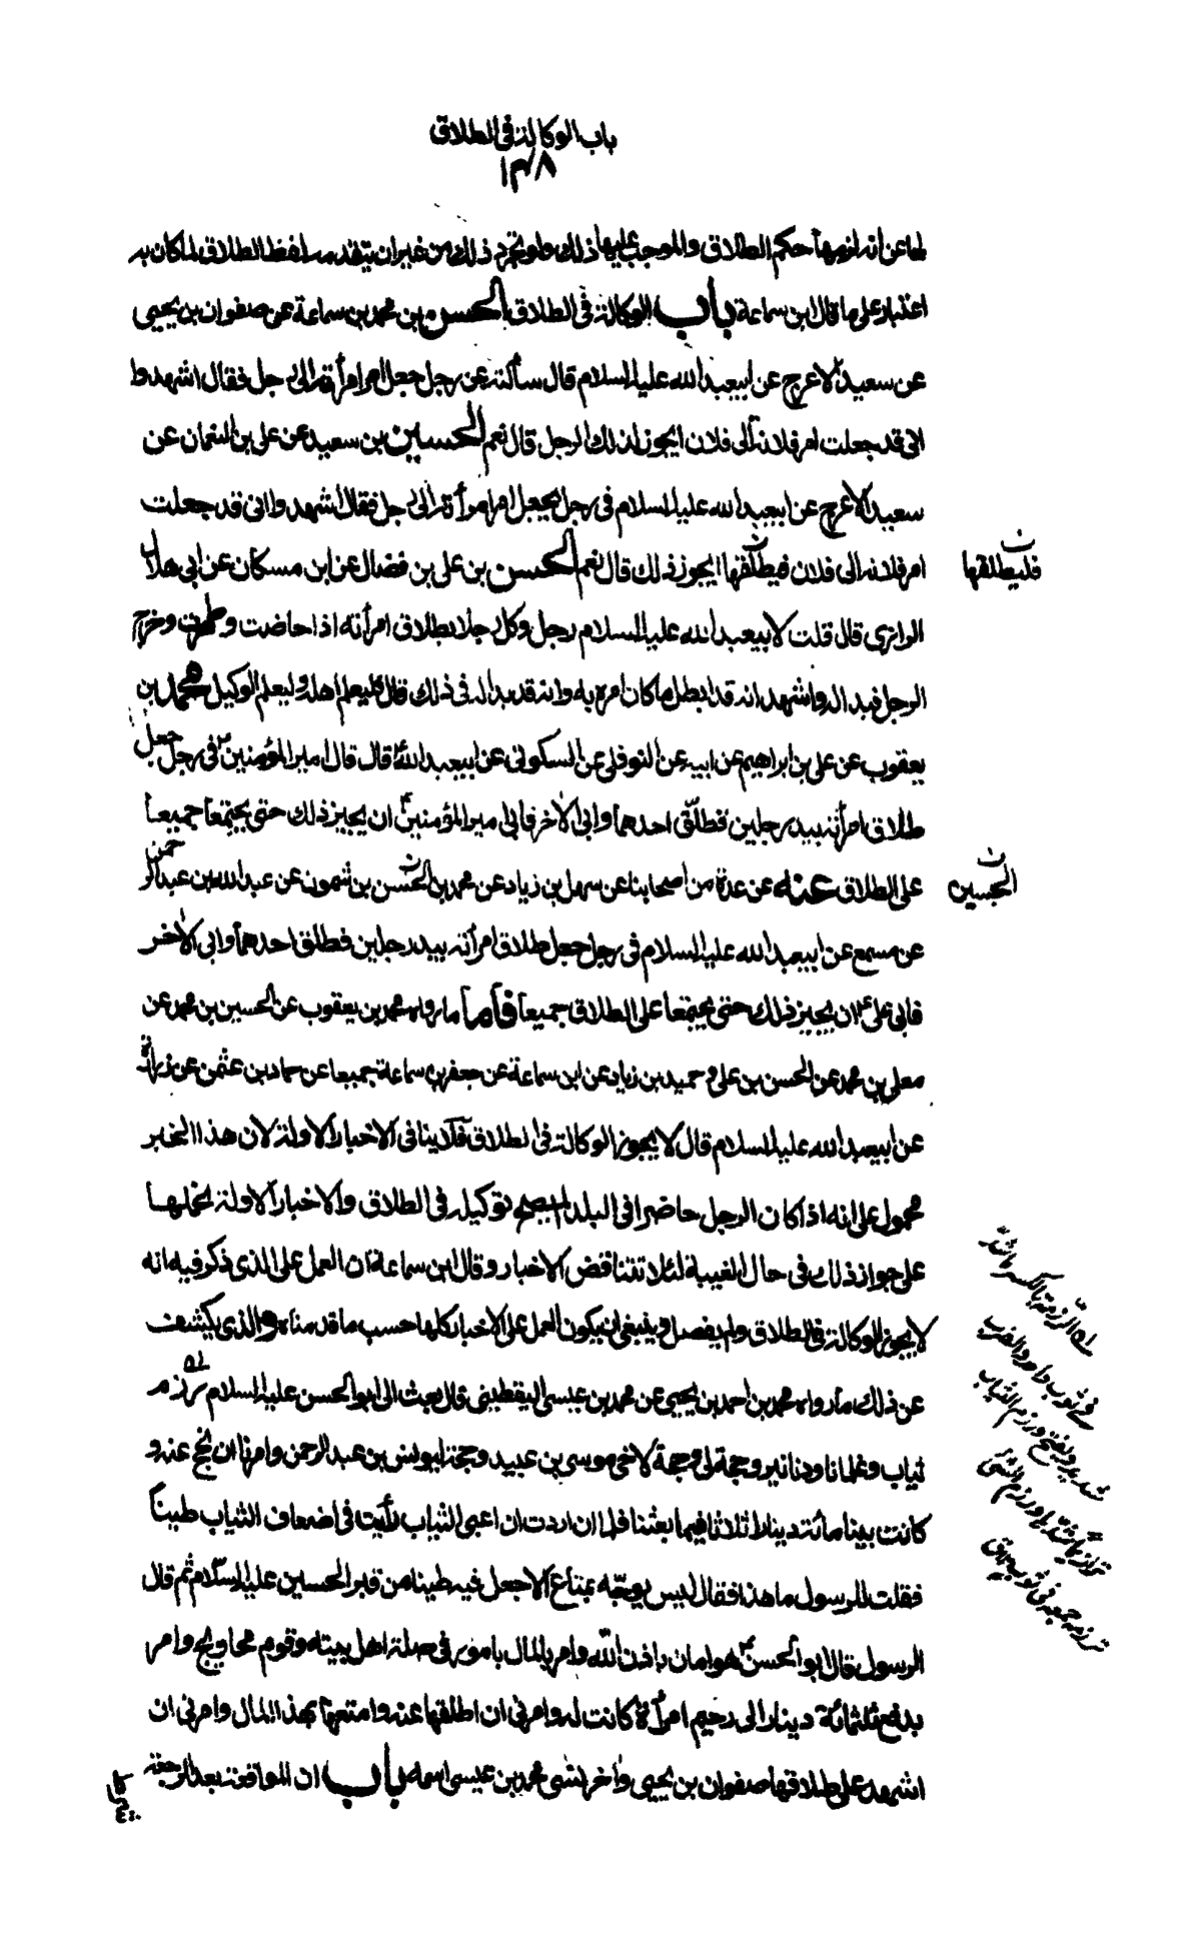 باب الوكالة فى الطلاق
١٣٨
لها عن انه لزمها حكم الطلاق والموجب عليها ذلك ولو تجرد ذلك من غير ان يتقدمه لفظ الطلاق لما كان به
اعتبار على ما قال ابن سماعة باب الوكالة فى الطلاق الحسن بن محمد بن سماعة عن صفوان بن يحيى
عن سعيد الاعرج عن ابيعبد الله عليه السلام قال سألته عن رجل جعل امر امرأته الى رجل فقال اشهدوا
انى قد جعلت امر فلانة الى فلان ايجوز ذلك للرجل قال نعم الحسين بن سعيد عن على بن النعمان عن
سعيد الاعرج عن ابيعبد الله عليه السلام فى رجل يجعل امر امرأته الى رجل فقال اشهدوا انى قد جعلت
امر فلانه الى فلان فيطلقها ايجوز ذلك قال نعم الحسن بن على بن فضال عن ابن مسكان عن ابى هلال
فليطلقها ن
الرازى قال قلت لابيعبد الله عليه السلام رجل وكل رجلا بطلاق امرأته اذا حاضت وطهرت وخرج
الرجل فبدا له واشهد انه قد ابطل ما كان امره به وانه قد بدا له فى ذلك قال فليعلم اهله وليعلم الوكيل محمد بن
يعقوب عن على بن ابراهيم عن ابيه عن النوفلى عن السكونى عن ابيعبد الله ع قال قال امير المؤمنين ع فى رجل جعل
طلاق امرأته بيد رجلين فطلق احدهما وابى الاخر فابى امير المؤمنين ع ان يجيز ذلك حتى يجتمعا جميعا
على الطلاق عنه عن عدة من اصحابنا عن سهل بن زياد عن محمد بن الحسن بن شمون عن عبد الله بن عبد الرحمن
الحسين ن
عن مسمع عن ابيعبد الله عليه السلام فى رجل جعل طلاق امرأته بيد رجلين فطلق احدهما وابى الاخر
فابى على ع ان يجيز ذلك حتى يجتمعا على الطلاق جميعا فأما ما رواه محمد بن يعقوب عن الحسين بن محمد عن
معلى بن محمد عن الحسن بن على وحميد بن زياد عن ابن سماعة عن جعفر بن سماعة جميعا عن حماد بن عثمن عن زرارة
عن ابيعبد الله عليه السلام قال لا يجوز الوكالة فى الطلاق فلا ينافى الاخبار الاولة لان هذا الخبر
محمول على انه اذا كان الرجل حاضرا فى البلد لم يصح توكيله فى الطلاق والاخبار الاولة نحملها
على جواز ذلك فى حال الغيبة لئلا تتناقض الاخبار وقال ابن سماعة ان العمل على الذى ذكر فيه انه
لا يجوز الوكالة فى الطلاق ولم يفصل وينبغى ان يكون العمل على الاخبار كلها حسب ما قدمناه والذى يكشف
عن ذلك ما رواه محمد بن احمد بن يحيى عن محمد بن عيسى اليقطينى قال بعث الى ابو الحسن عليه السلام رزم
ثياب وغلمانا ودنانير وحجة لى وحجة لاخى موسى بن عبيد وحجة ليونس بن عبد الرحمن وامرنا ان نحج عنه و
كانت بيننا مائة دينار اثلاثا فيما بيننا فلما ان اردت ان اعبى الثياب رأيت فى اضعاف الثياب طينا
فقلت للرسول ما هذا فقال ليس يوجه بمتاع الا جعل فيه طينا من قبر الحسين عليه السلام ثم قال
الرسول قال ابو الحسن ع هو امان باذن الله وامر بالمال بامور فى صلة اهل بيته وقوم محاويج وامر
بدفع ثلثمائة دينار الى رحيم امرأة كانت له وامرنى ان اطلقها عنه وامتعها بهذا المال وامرنى ان
اشهد على طلاقها صفوان بن يحيى واخر نسى محمد بن عيسى اسمه باب ان المواقعة بعد الرجعة